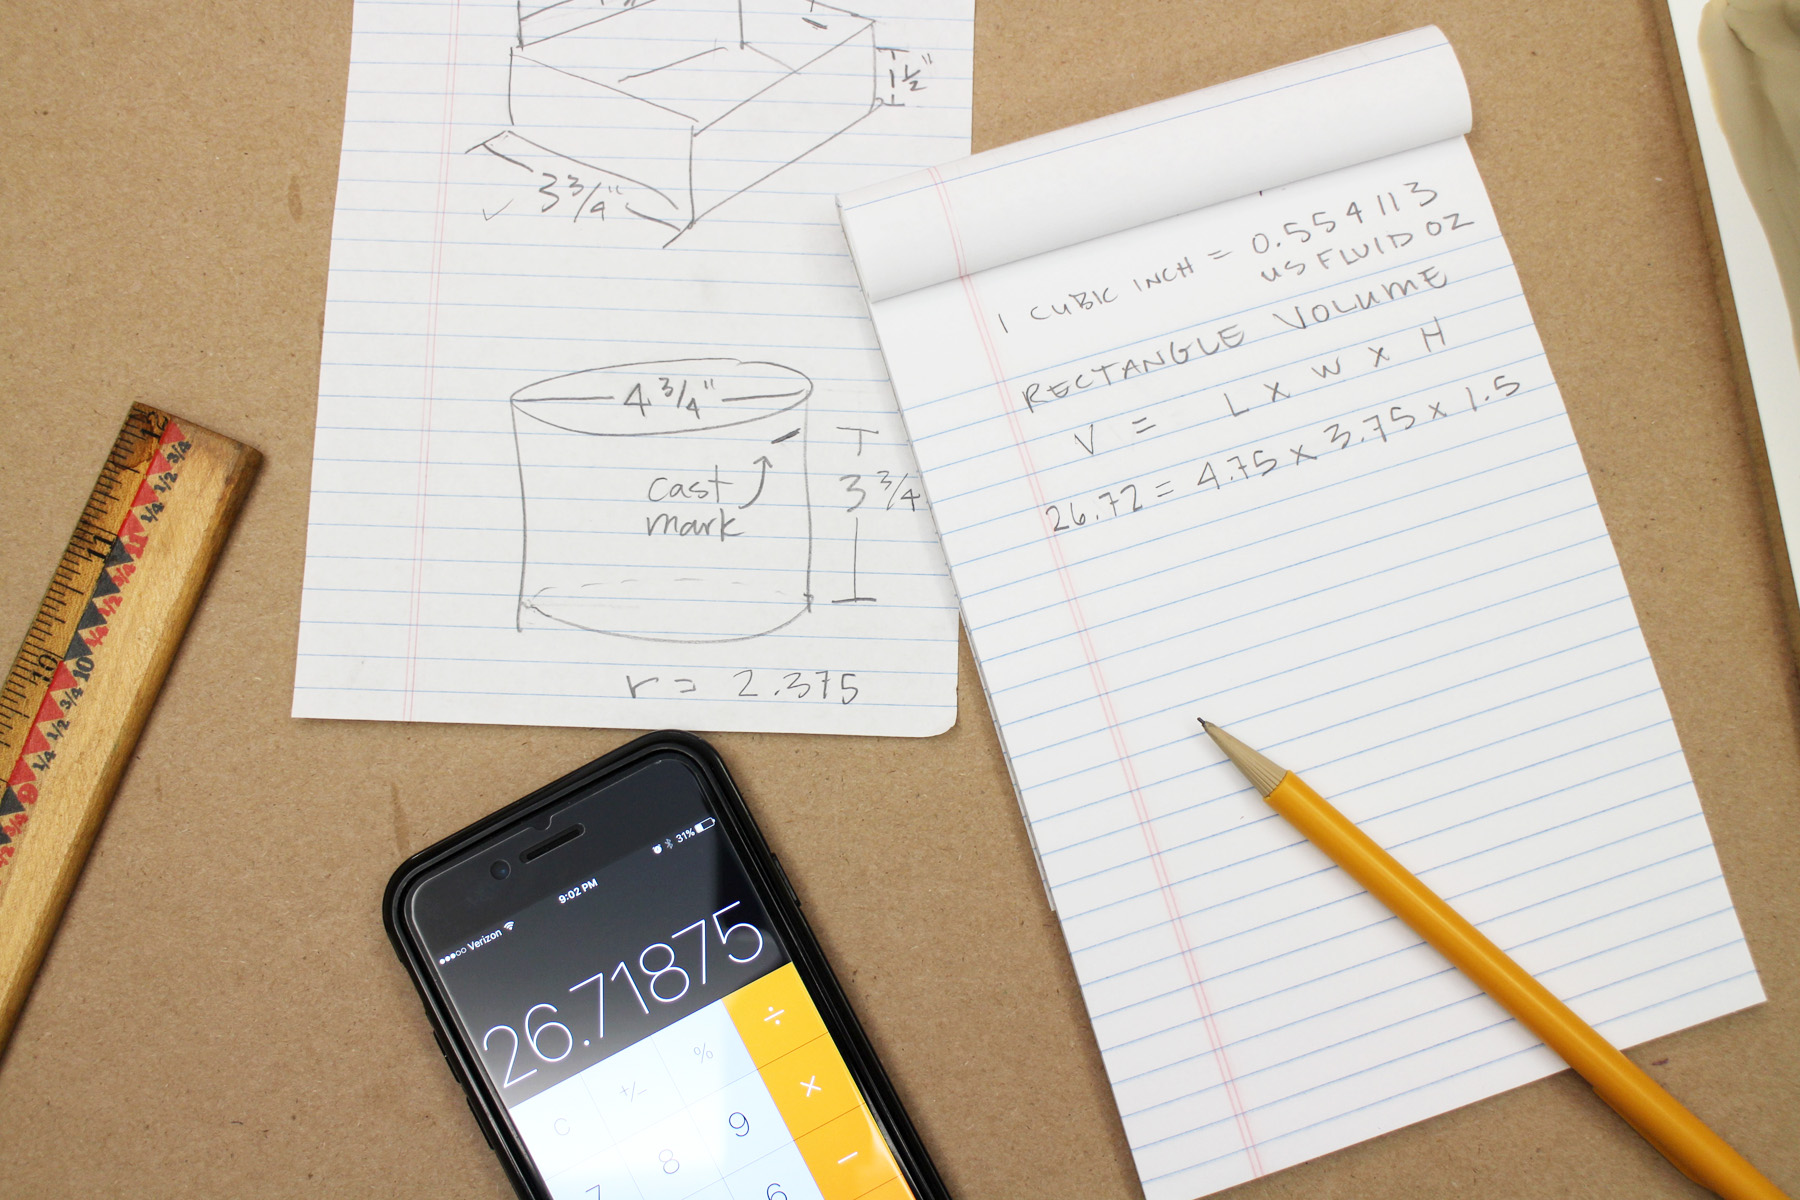 1/2"
3 3/4"
4 3/4"
cast
mark
3 3/4
r = 2.375
1 CUBIC INCH = 0.554113
US FLUID OZ
RECTANGLE VOLUME
V = L x W x H
26.72 = 4.75 x 3.75 x 1.5
12
3/4
1/2
1/4
11
11
3/4
1/2
1/4
10
10
3/4
1/2
1/4
9
3/4
1/2
Verizon 9:02 PM 31%
26.71875
C +/- % ÷
7 8 9 ×
6 −